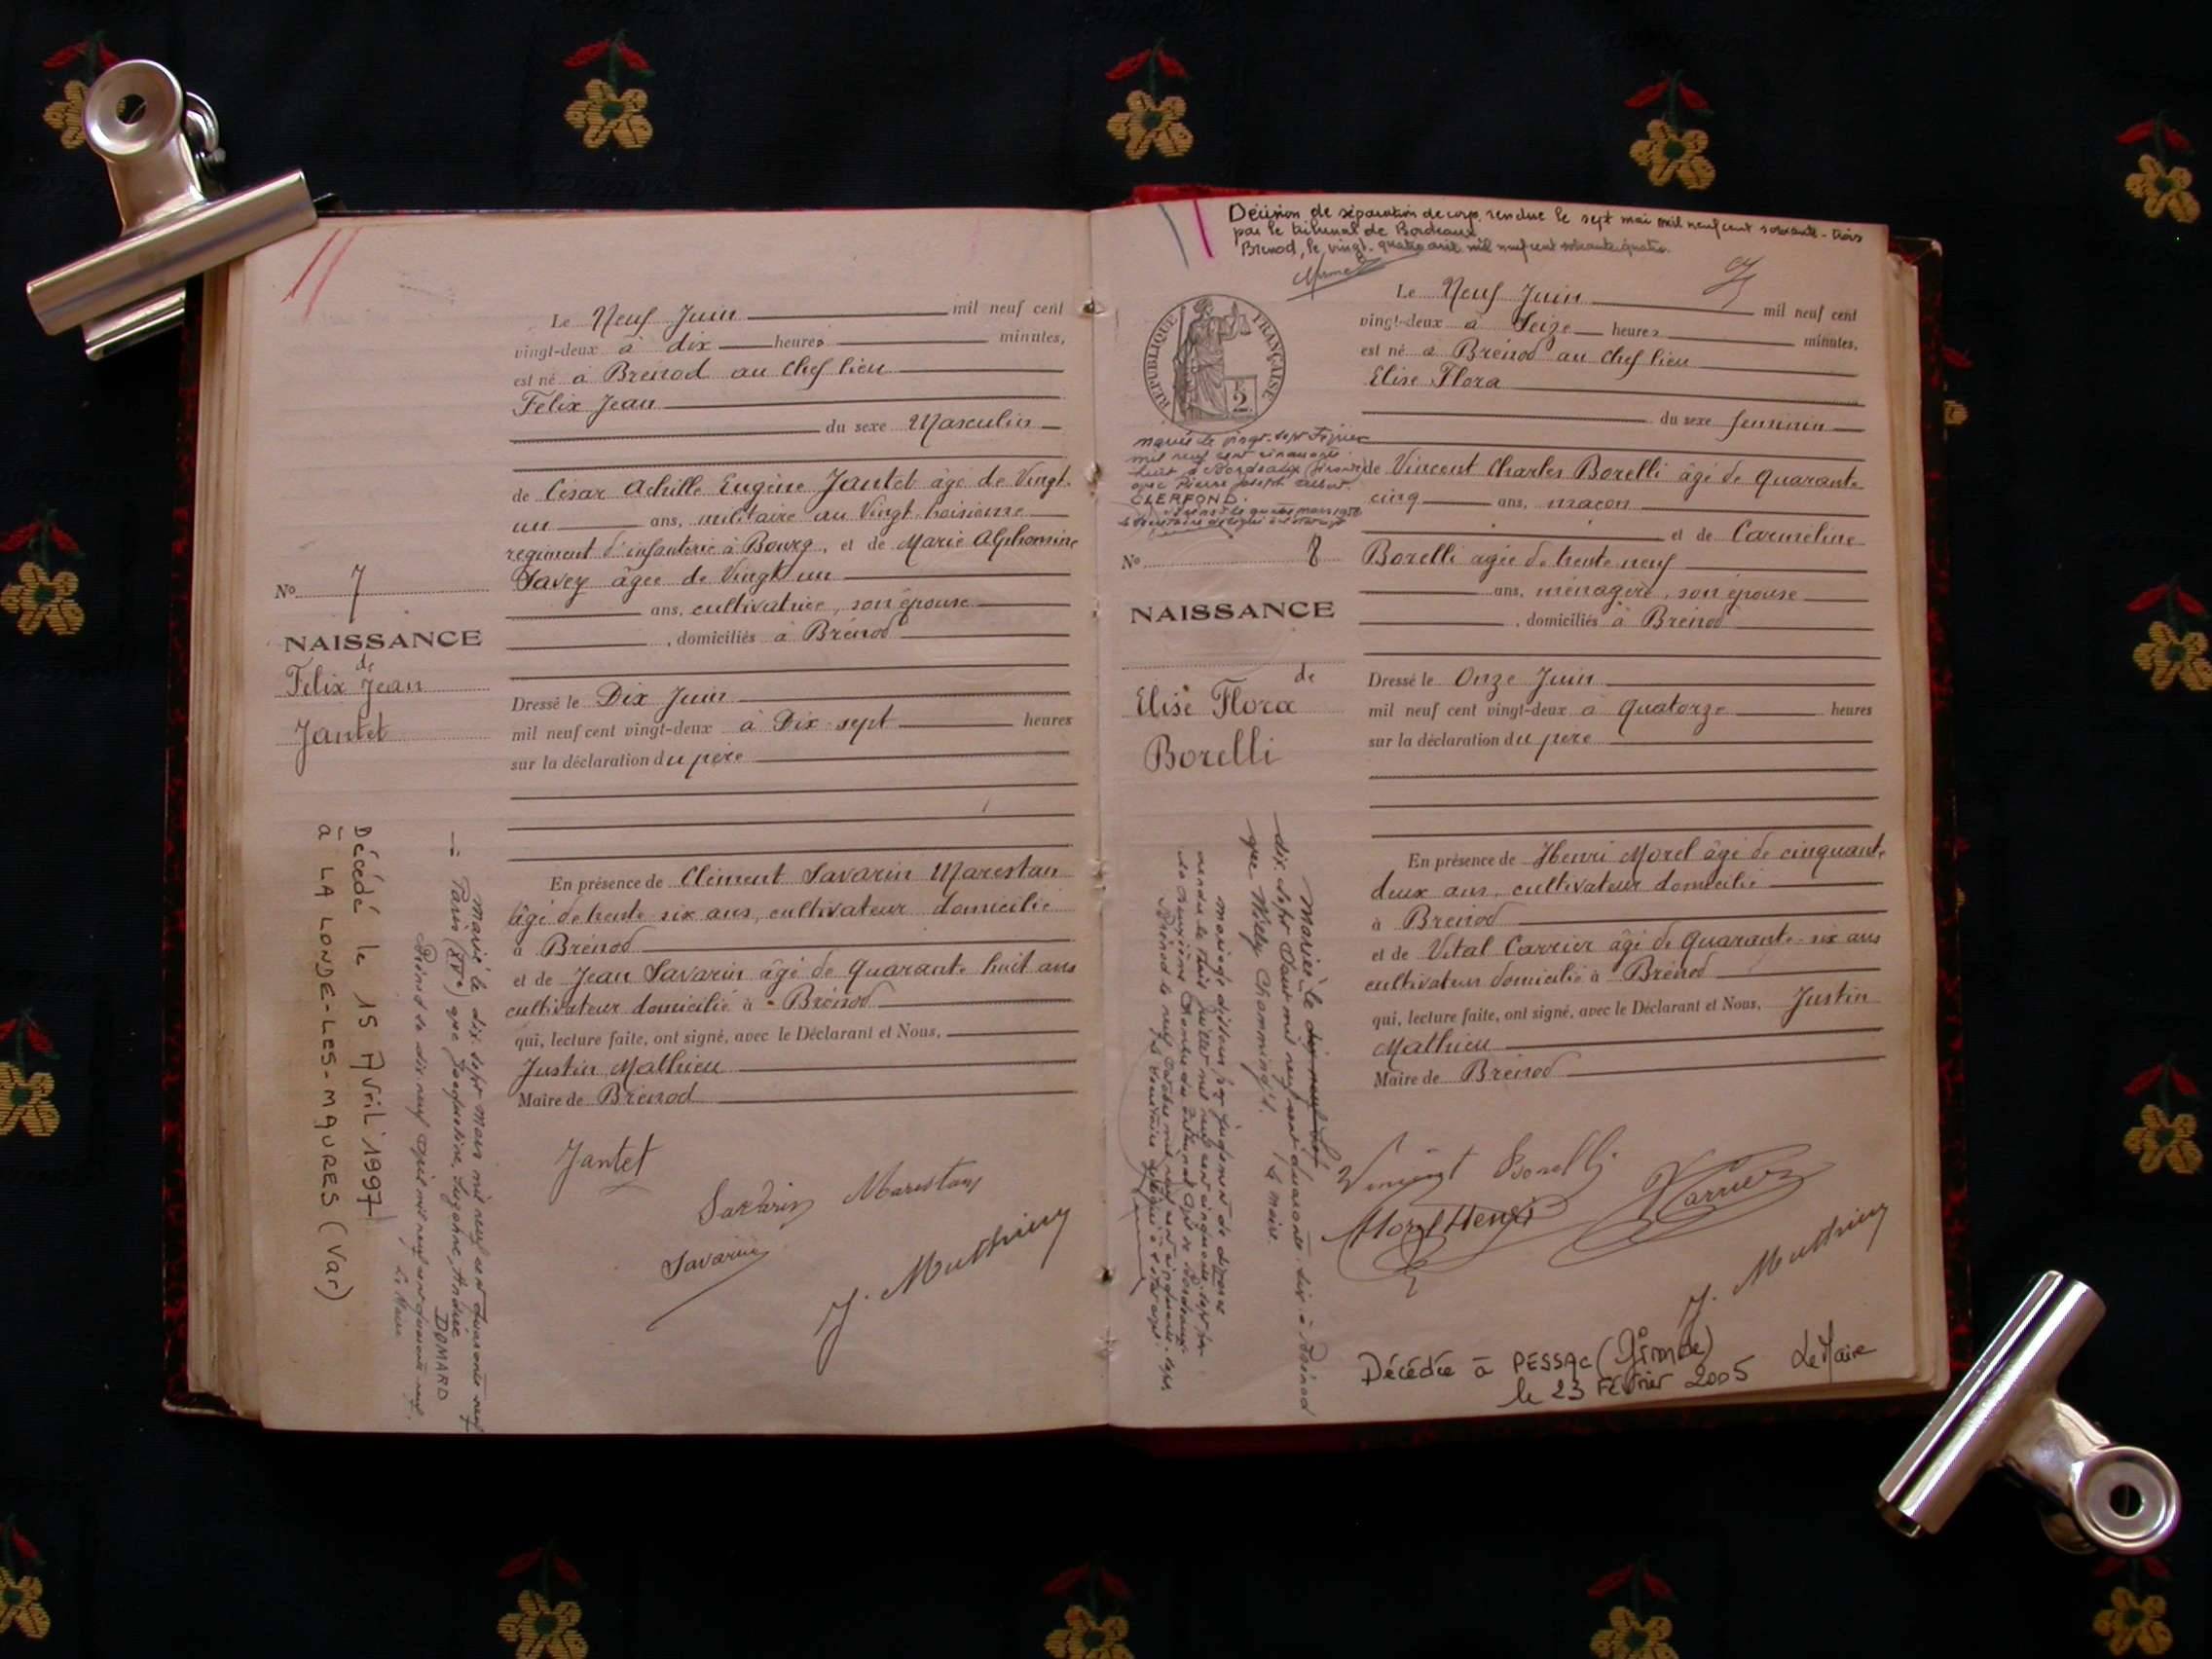 Le Neuf Juin mil neuf cent
vingt-deux à dix heures minutes,
est né à Brénod au chef lieu
Felix Jean
du sexe Masculin
de César Achille Eugène Jantet âgé de Vingt
un ans, militaire au Vingt troisième
regiment d'infanterie à Bourg, et de Marie Alphonsine
Savey âgée de Vingt un
ans, cultivatrice, son épouse
, domiciliés à Brénod
No 7
NAISSANCE
de
Felix Jean
Jantet
Dressé le Dix Juin
mil neuf cent vingt-deux à Dix-sept heures
sur la déclaration du père
En présence de Clément Savarin Marestan
âgé de trente-six ans, cultivateur domicilié
à Brénod
et de Jean Savarin âgé de Quarante huit ans
cultivateur domicilié à Brénod
qui, lecture faite, ont signé, avec le Déclarant et Nous,
Justin Mathieu
Maire de Brénod
Jantet
Savarin Marestan
Savarin
J. Mathieu
Marié le dix sept Mars mil neuf cent quarante neuf
à Paris (XVe) avec Jacqueline, Suzanne, Andrée
DOMARD
Brénod le dix neuf Avril mil neuf cent quarante neuf.
Le Maire
Décédé le 15 Avril 1997
à LA LONDE-LES-MAURES (Var)
Décision de séparation de corps, rendue le sept mai mil neuf cent soixante-trois
par le tribunal de Bordeaux
Brénod, le vingt-quatre avril mil neuf cent soixante quatre.
Le Neuf Juin mil neuf cent
vingt-deux à Seize heures minutes,
est né à Brénod au chef lieu
Elise Flora
du sexe feminin
RÉPUBLIQUE FRANÇAISE
2
mariée le vingt-sept Février
mil neuf cent cinquante
huit à Bordeaux (Gironde)
avec Pierre Joseph Albert
CLERFOND.
de Vincent Charles Borelli âgé de quarante
cinq ans, maçon
et de Carméline
Borelli agée de trente neuf
ans, ménagère, son épouse
, domiciliés à Brénod
No 8
NAISSANCE
de
Elise Flora
Borelli
Dressé le Onze Juin
mil neuf cent vingt-deux à Quatorze heures
sur la déclaration du père
En présence de Henri Morel âgé de cinquante
deux ans, cultivateur domicilié
à Brénod
et de Vital Carrier âgé de Quarante-six ans
cultivateur domicilié à Brénod
qui, lecture faite, ont signé, avec le Déclarant et Nous, Justin
Mathieu
Maire de Brénod
Vincent Borelli
Morel Henri
V Carrier
J. Mathieu
Mariée le
dix sept Aout mil neuf cent quarante six à Brénod
Le maire.
mariage dissous par jugement de divorce
Décédée à PESSAC (Gironde)
le 23 Février 2005
Le Maire